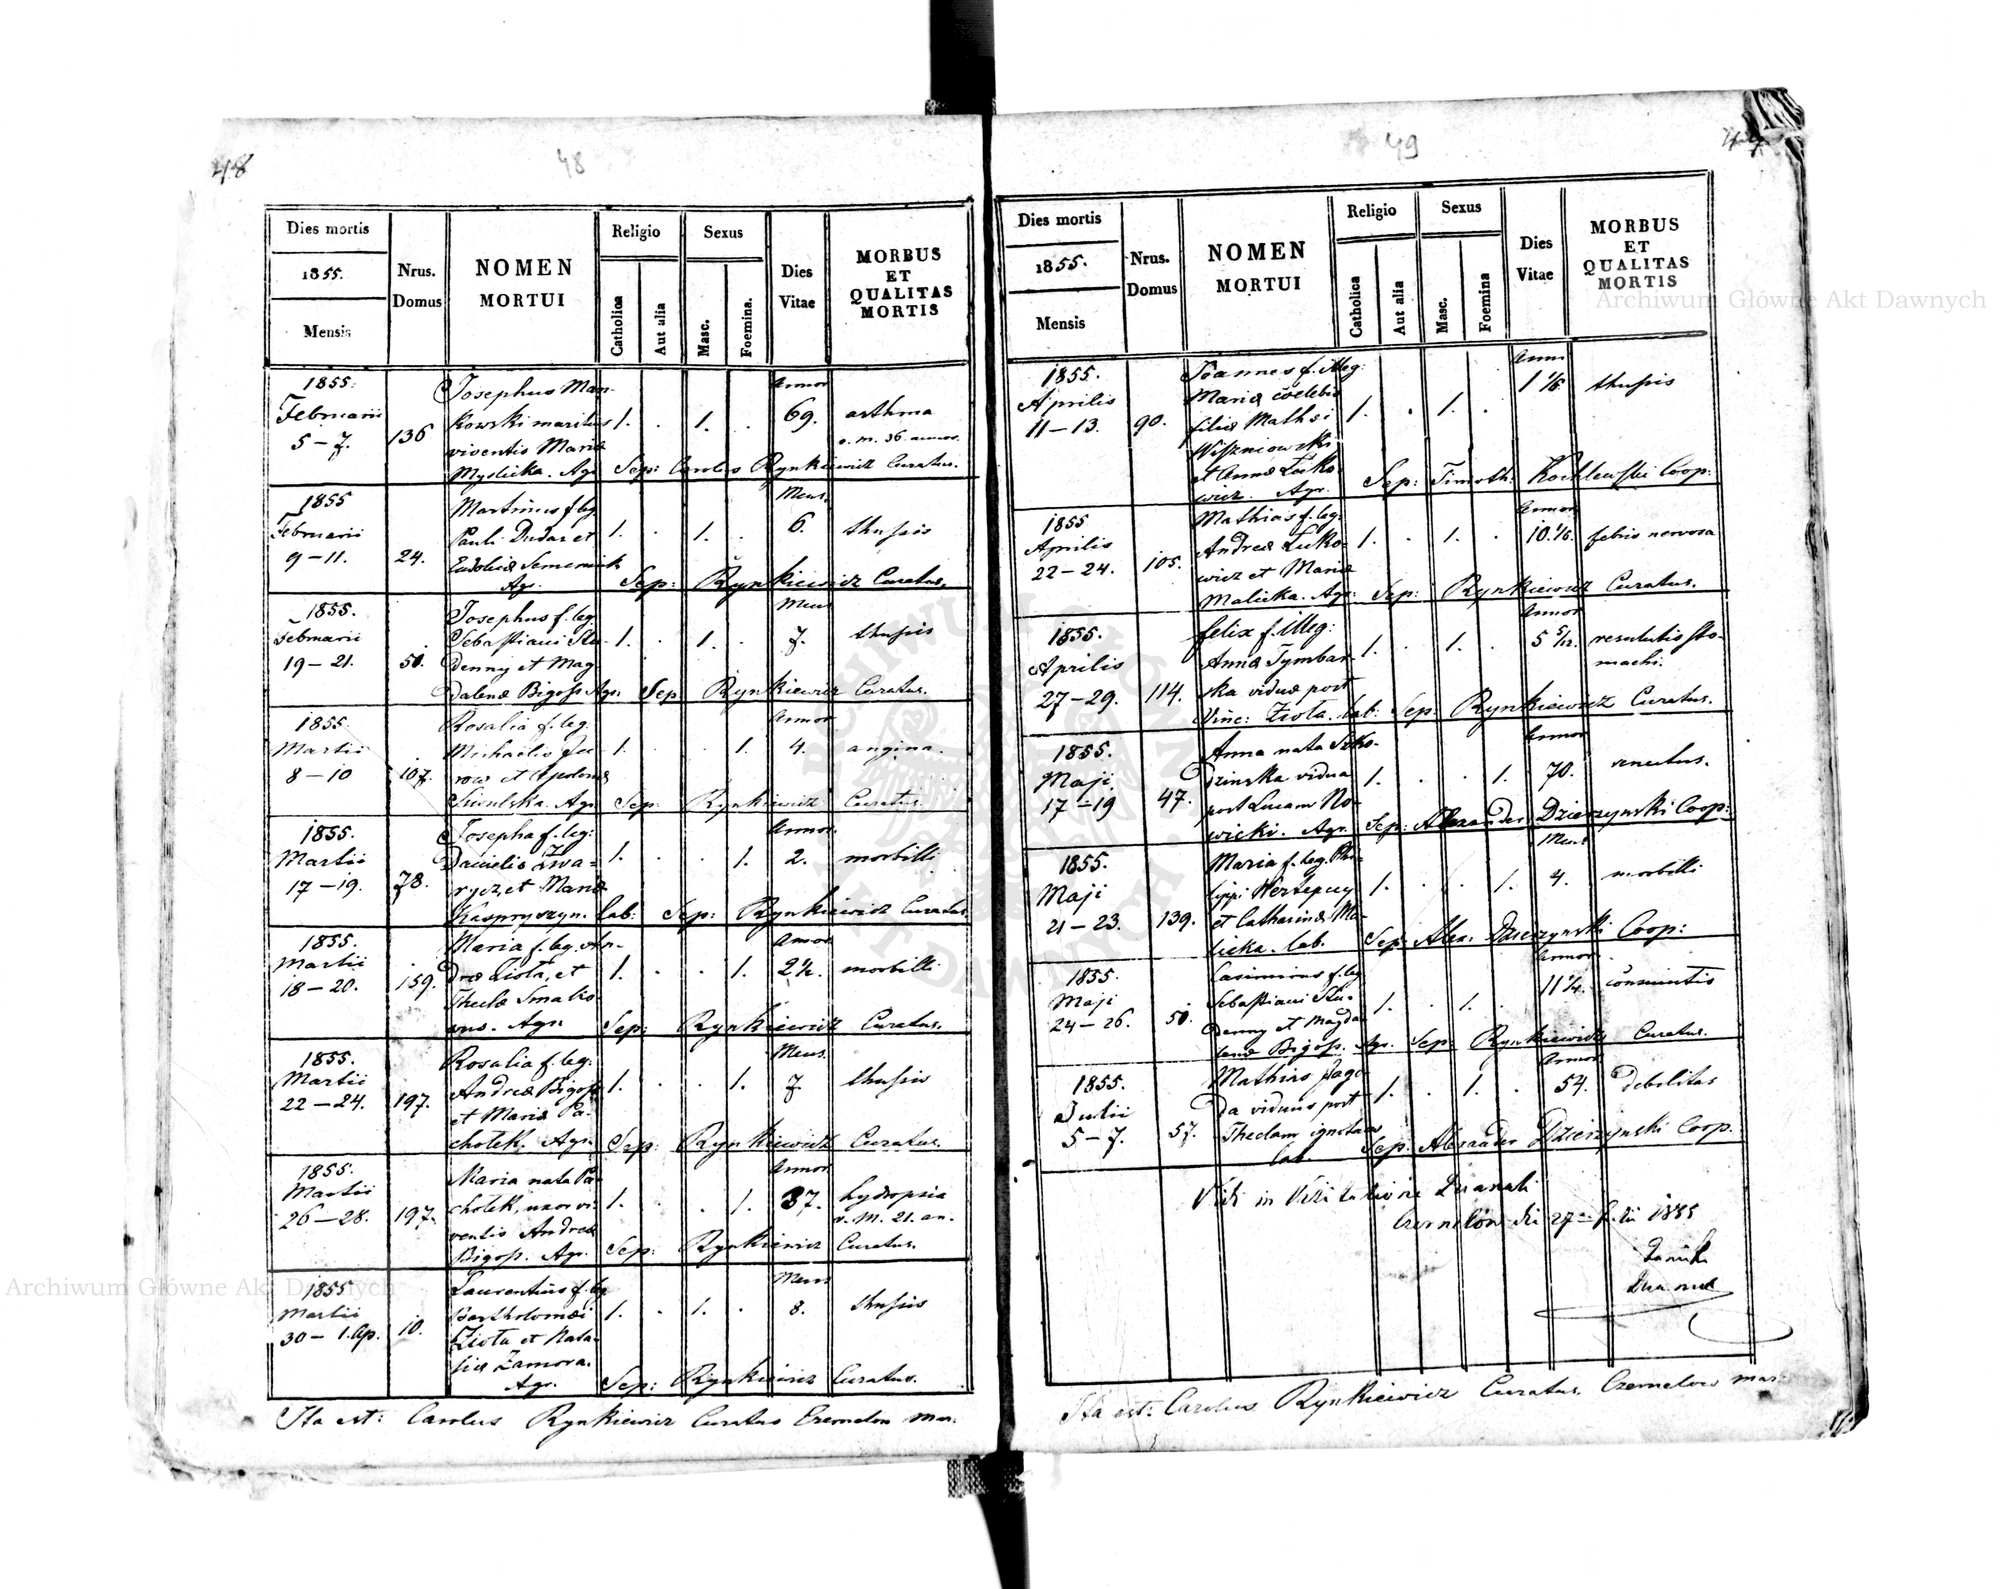 48
48
Dies mortis
1855.
Mensis
Nrus.
Domus
NOMEN
MORTUI
Religio
Catholica
Aut alia
Sexus
Masc.
Foemina.
Dies
Vitae
MORBUS
ET
QUALITAS
MORTIS
1855.
Februarii
5 – 7.
136
Josephus Man-
kowski maritus
viventis Mariæ
Myslicka. Agr.
1. . 1. .
Annor
69.
asthma
v. m. 36. annor.
Sep: Carolus Rynkiewicz Curatus.
1855
Februarii
9 – 11.
24.
Martinus f. leg.
Pauli Dudar et
Eudoliæ Semeniuk
Agr.
1. . 1. .
Mens.
6.
thusis
Sep: Rynkiewicz Curatus.
1855.
Februarii
19 – 21.
50.
Josephus f. leg.
Sebastiani Stu-
denny et Mag
dalenæ Bigoss. Agr.
1. . 1. .
Mens
7.
thusis
Sep Rynkiewicz Curatus.
1855.
Martii
8 – 10
107.
Rosalia f. leg.
Michaelis
et Apoloniæ
Agr.
1. . . 1.
Annor
4.
angina.
Sep: Rynkiewicz Curatus.
1855.
Martii
17 – 19.
78.
Josepha f. leg:
Danielis Zwa-
rycz et Mariæ
Kaspryszyn. lab:
1. . . 1.
Annor.
2.
morbilli
Sep: Rynkiewicz Curatus.
1855.
Martii
18 – 20.
159.
Maria f. leg. An-
dreæ Ziota, et
Theclæ Smalko
Agr.
1. . . 1.
Annor
2½.
morbilli
Sep: Rynkiewicz Curatus.
1855.
Martii
22 – 24.
197.
Rosalia f. leg:
Andreæ Bigoss
et Mariæ Pa-
cholek. Agr.
1. . . 1.
Mens.
7
thusis
Sep: Rynkiewicz Curatus.
1855.
Martii
26 – 28.
197.
Maria nata Pa-
cholek, uxor vi-
ventis Andreæ
Bigoss. Agr.
1. . . 1.
Annor
37.
hydropsia
v. M. 21. an.
Sep: Rynkiewicz Curatus.
1855
Martii
30 – 1. Ap.
10.
Laurentius f. leg
Bartholomæi
Ziota et Nata-
liæ Zamora.
Agr.
1. . 1. .
Mens
8.
thusis
Sep: Rynkiewicz Curatus.
Ita est: Carolus Rynkiewicz Curatus Czernelow maz.
49
Dies mortis
1855.
Mensis
Nrus.
Domus
NOMEN
MORTUI
Religio
Catholica
Aut alia
Sexus
Masc.
Foemina
Dies
Vitae
MORBUS
ET
QUALITAS
MORTIS
1855.
Aprilis
11 – 13.
90.
Joannes f. illeg:
Mariæ cœlebis
filiæ Mathæi
Wiszniowski
et Annæ Łuko
wicz. Agr.
1. . 1. .
Anni
1 1/6
thusis
Sep: Timoth: Kochlewski Coop:
1855
Aprilis
22 – 24.
105.
Mathias f. leg:
Andreæ Łuko-
wicz et Mariæ
Malicka. Agr.
1. . 1. .
Annor
10 1/6.
febris nervosa
Sep: Rynkiewicz Curatus.
1855.
Aprilis
27 – 29.
114.
Felix f. illeg:
Annæ Tymbar-
ska viduæ post
Vinc: Ziota. lab:
1. . 1. .
Annor
5 5/12.
resolutio sto-
machi.
Sep: Rynkiewicz Curatus.
1855.
Maji
17 – 19
47.
Anna nata Szko-
dzinska vidua
post Lucam No-
wicki. Agr.
1. . . 1.
Annor
70.
Sep: Alexander Dzierzynski Coop:
1855.
Maji
21 – 23.
139.
Maria f. leg. Phi-
lippi Herlepuy
et Catharinæ Ma-
licka. lab.
1. . . 1.
Mens
4.
morbilli
Sep: Alex: Dzierzynski Coop:
1855.
Maji
24 – 26.
50.
Casimirus f. leg
Sebastiani Stu-
denny et Magda
lenæ Bigoss. Agr.
1. . 1. .
Annor.
11¼.
Sep: Rynkiewicz Curatus.
1855.
Julii
5 – 7.
57.
Mathias Jago-
da viduus post
Theclam ignotam
lab.
1. . 1. .
Annor
54.
debilitas
Sep. Alexander Dzierzynski Coop.
Vidi in Visitatione Decanali
Czernelow die 27 Julii 1855
Ita est: Carolus Rynkiewicz Curatus. Czernelow maz:
Archiwum Główne Akt Dawnych
Archiwum Główne Akt Dawnych
ARCHIWUM GŁÓWNE AKT DAWNYCH